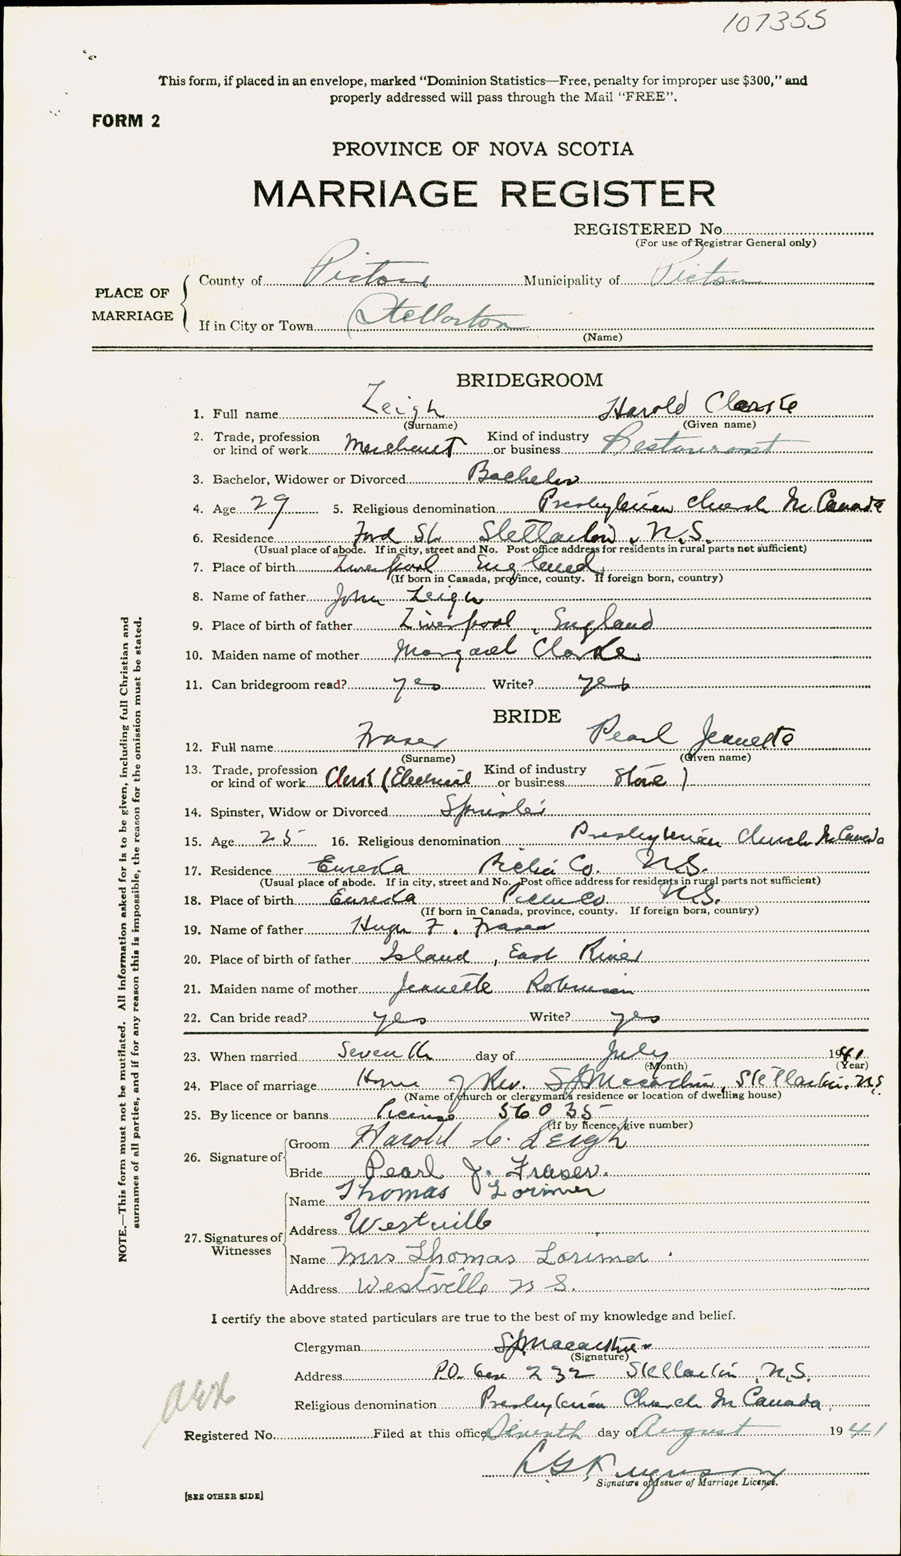 107355
This form, if placed in an envelope, marked "Dominion Statistics—Free, penalty for improper use $300," and
properly addressed will pass through the Mail "FREE".
FORM 2
PROVINCE OF NOVA SCOTIA
MARRIAGE REGISTER
REGISTERED No.
(For use of Registrar General only)
PLACE OF MARRIAGE
County of Pictou Municipality of Pictou
If in City or Town Stellarton
(Name)
BRIDEGROOM
1. Full name Leigh Harold Clarke
(Surname) (Given name)
2. Trade, profession or kind of work Merchant Kind of industry or business Restaurant
3. Bachelor, Widower or Divorced Bachelor
4. Age 29 5. Religious denomination Presbyterian Church In Canada
6. Residence Ford St. Stellarton, N.S.
(Usual place of abode. If in city, street and No. Post office address for residents in rural parts not sufficient)
7. Place of birth Liverpool England
(If born in Canada, province, county. If foreign born, country)
8. Name of father John Leigh
9. Place of birth of father Liverpool, England
10. Maiden name of mother Margaret Clarke
11. Can bridegroom read? yes Write? yes
BRIDE
12. Full name Fraser Pearl Jeanette
(Surname) (Given name)
13. Trade, profession or kind of work Clerk (Electrical Kind of industry or business Store)
14. Spinster, Widow or Divorced Spinster
15. Age 25 16. Religious denomination Presbyterian Church In Canada
17. Residence Eureka Pictou Co. N.S.
(Usual place of abode. If in city, street and No. Post office address for residents in rural parts not sufficient)
18. Place of birth Eureka Pictou Co. N.S.
(If born in Canada, province, county. If foreign born, country)
19. Name of father Hugh F. Fraser
20. Place of birth of father Island, East River
21. Maiden name of mother Jeanette Robinson
22. Can bride read? yes Write? yes
23. When married Seventh day of July 1941
(Month) (Year)
24. Place of marriage Home of Rev. S J Macarthur, Stellarton, N.S.
(Name of church or clergyman's residence or location of dwelling house)
25. By licence or banns License 56035
(If by licence, give number)
26. Signature of Groom Harold C. Leigh
Bride Pearl J. Fraser.
27. Signatures of Witnesses Name Thomas Lorimer
Address Westville
Name Mrs Thomas Lorimer.
Address Westville N S.
I certify the above stated particulars are true to the best of my knowledge and belief.
Clergyman S J Macarthur
(Signature)
Address P.O. Box 232 Stellarton, N.S.
Religious denomination Presbyterian Church In Canada.
Registered No. Filed at this office day of August 1941
Ferguson
Signature of Issuer of Marriage Licence.
[SEE OTHER SIDE]
NOTE.—This form must not be mutilated. All information asked for is to be given, including full Christian and
surnames of all parties, and if for any reason this is impossible, the reason for the omission must be stated.